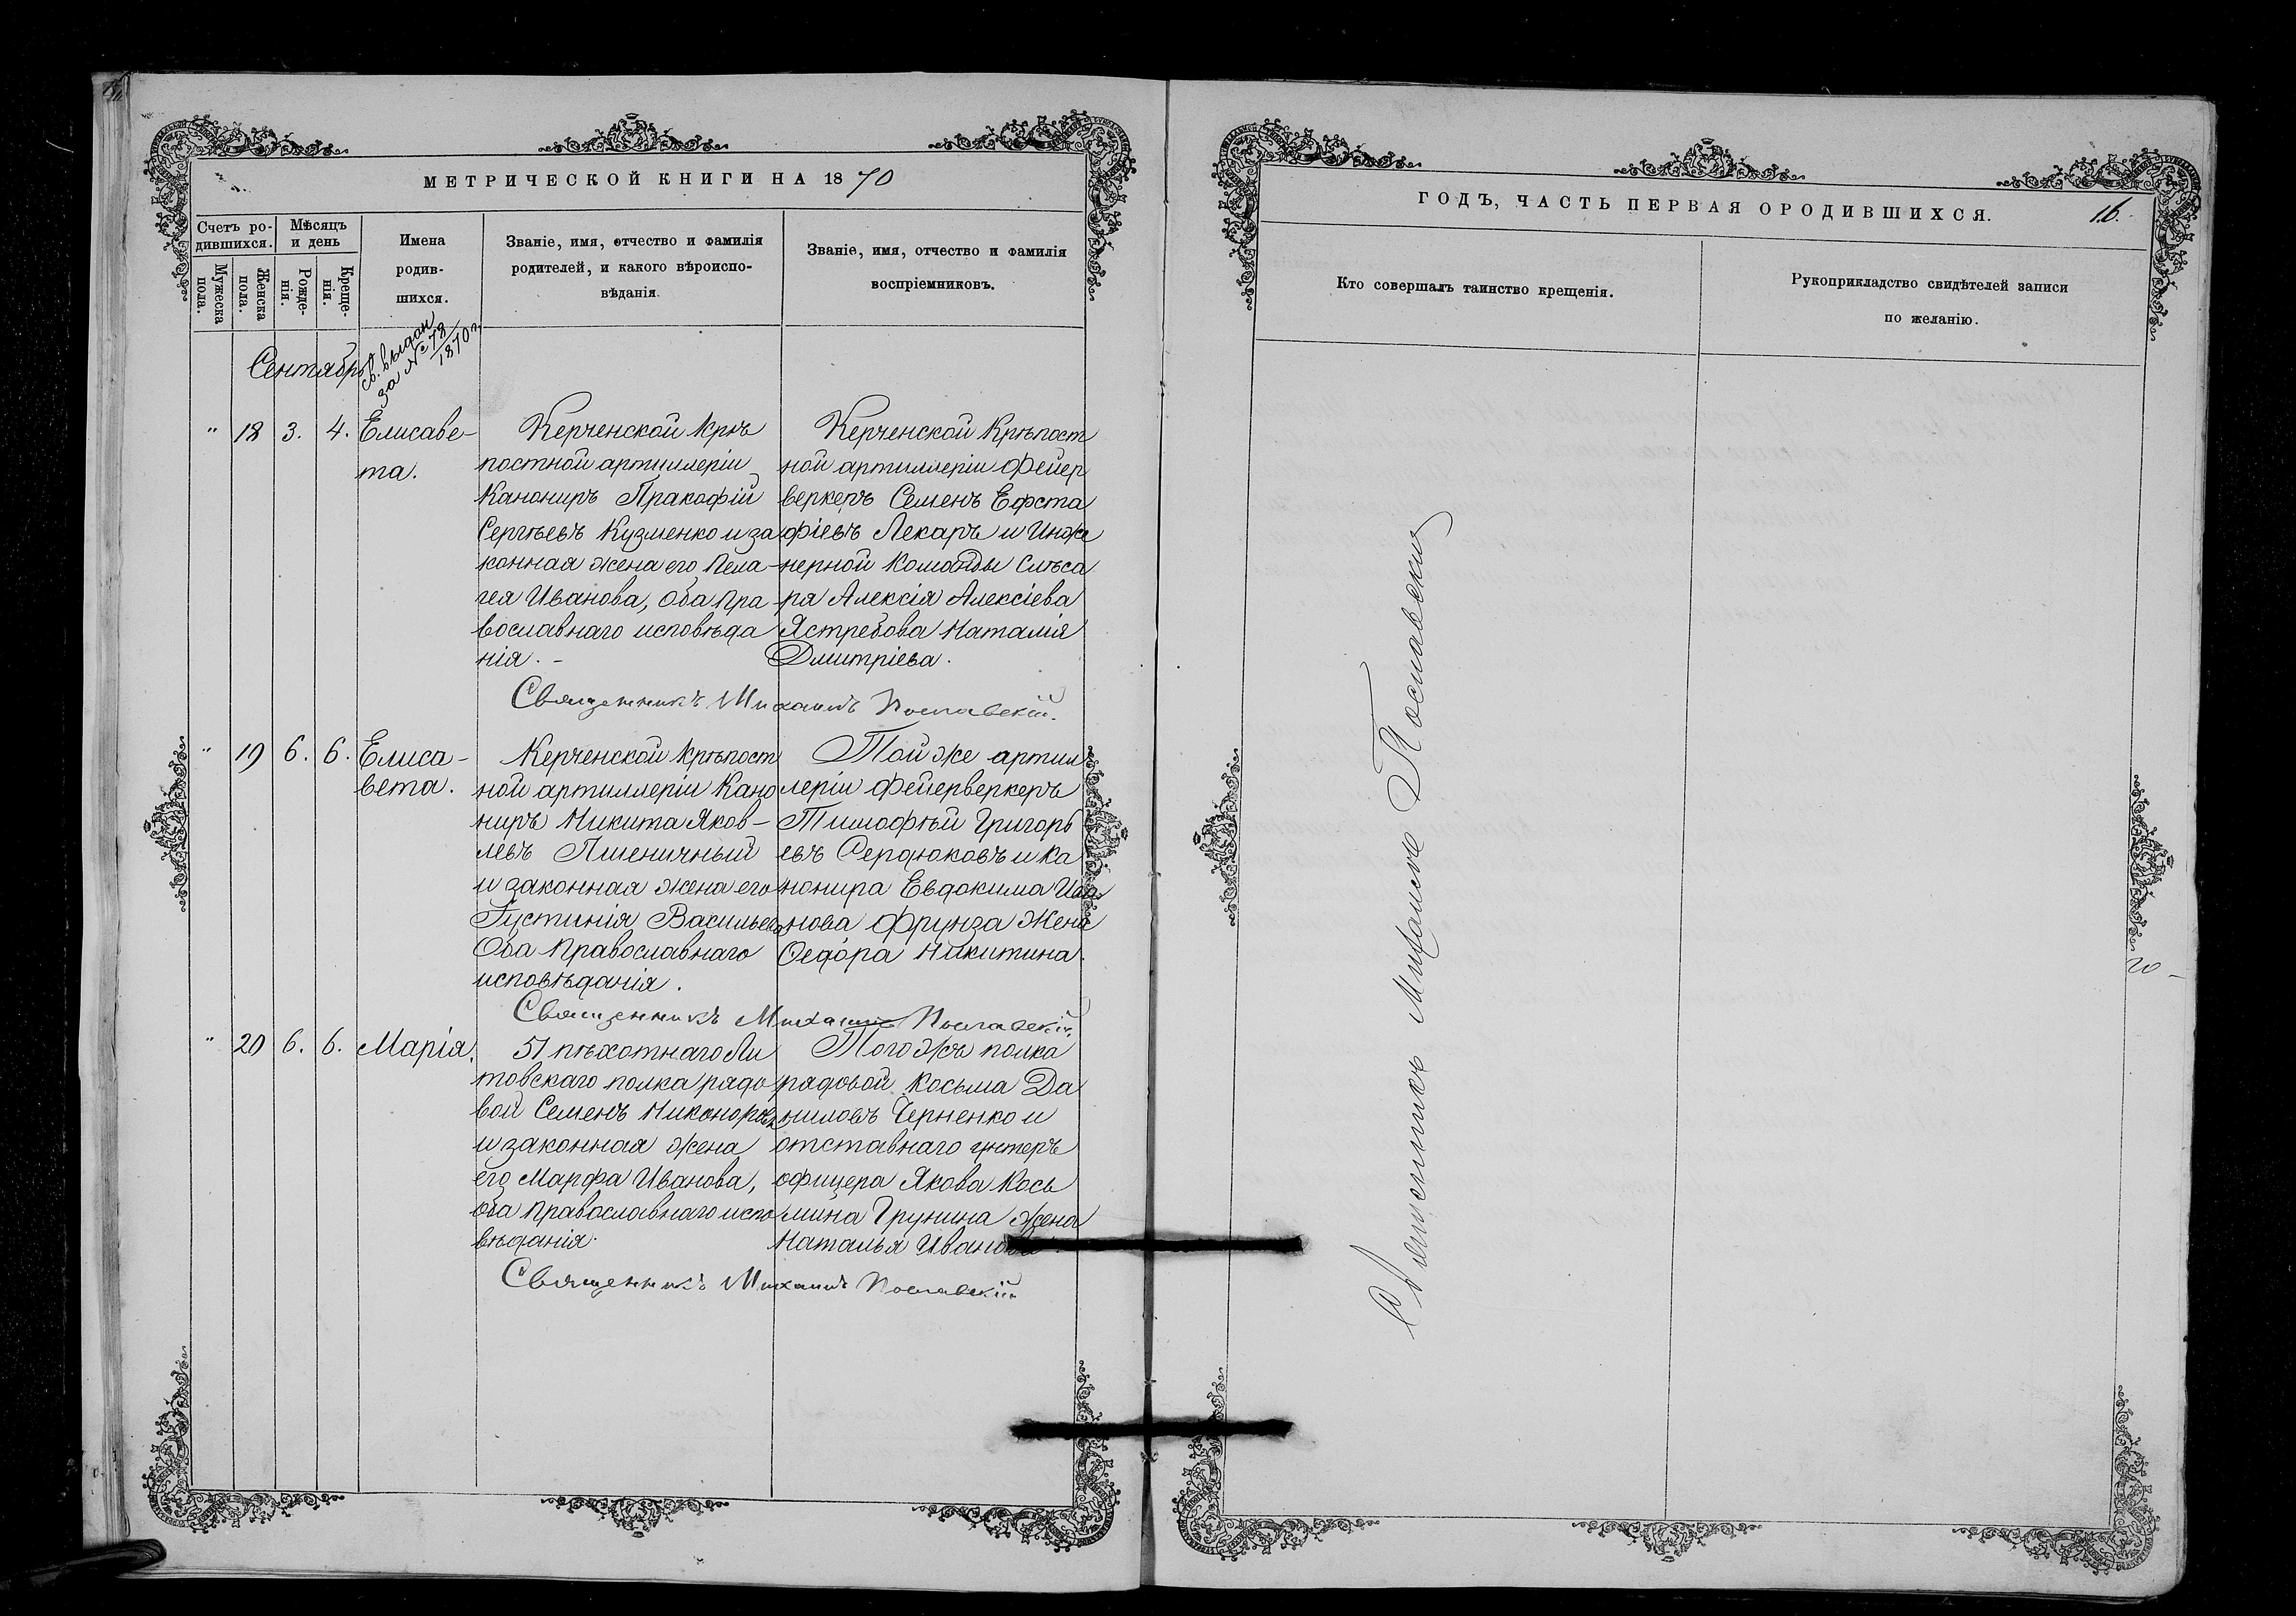 МЕТРИЧЕСКОЙ КНИГИ НА 1870
Счетъ ро-
дившихся.
Мѣсяцъ
и день
Мужеска
пола.
Женска
пола.
Рожде-
нія.
Креще-
нія.
Имена
родив-
шихся.
Званіе, имя, отчество и фамилія
родителей, и какого вѣроиспо-
вѣданія.
Званіе, имя, отчество и фамилія
воспріемниковъ.
Сентябрь
св. выдан
за № 78
1870 г.
" 18 3. 4. Елисаве-
та.
Керченской Крѣ
постной артиллеріи
Канониръ Пракофій
Сергѣевъ Кузменко и за
конная жена его Пела-
гея Иванова, Оба пра
вославнаго исповѣда
нія. -
Керченской Крѣпост
ной артиллеріи Фейер
веркеръ Семенъ Ефста
фіевъ Лекарь и Инже
нерной Команды Слѣса
ря Алексія Алексіева
Ястребова Наталія
Дмитріева.
Священникъ Михаилъ Пославскій.
" 19 6. 6. Елиса-
вета.
Керченской Крѣпост
ной артиллеріи Кано
ниръ Никита Яков-
левъ Пшеничный
и законная жена его
Густинія Васильева
Оба Православнаго
исповѣданія.
Той же артил
леріи Фейерверкеръ
Тимофѣй Григорь
евъ Сердюковъ и Ка
нонира Евдокима Ива
нова Фрунза Жена
Ѳедора Никитина.
Священникъ Михаилъ Пославскій.
" 20 6. 6. Марія.
51 пѣхотнаго Ли
товскаго полка рядо
вой Семенъ Никоноровъ
и законная жена
его Марфа Иванова,
оба Православнаго испо
вѣданія.
Того Жъ полка
рядовой Косьма Да
ниловъ Черненко и
отставнаго унтеръ
офицера Якова Кось
мина Грунина Жена
Наталья Иванова.
Священникъ Михаилъ Пославскій
ГОДЪ, ЧАСТЬ ПЕРВАЯ ОРОДИВШИХСЯ.
16.
Кто совершалъ таинство крещенія.
Рукоприкладство свидѣтелей записи
по желанію.
Священникъ Михаилъ Пославскій